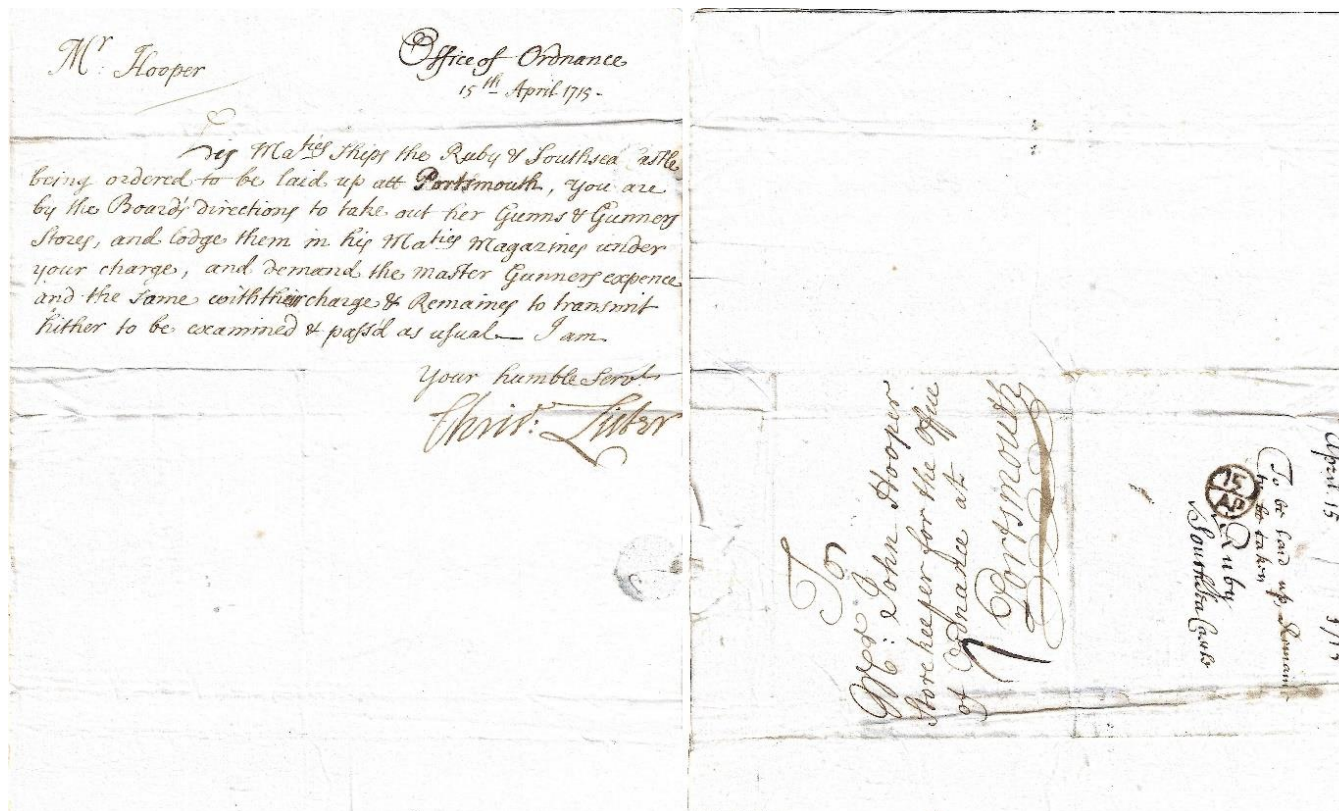 Mr: Hooper
Office of Ordnance
15th April 1715-
His Maties Ships the Ruby & Southsea Castle
being ordered to be laid up att Portsmouth, you are
by the Board's directions to take out her Gunns & Gunners
Stores, and lodge them in his Maties Magazines under
your charge, and demand the master Gunners expence
and the same with their charge & Remaines to transmit
hither to be examined & pass'd as usual — I am
Your humble Servt
Chrisr: Lister
To
Mr: John Hooper
Storekeeper for the Office
of Ordnance at
Portsmouth
15
AP
Ruby
Southsea Castle
To be laid up Remain
to be taken
April 15